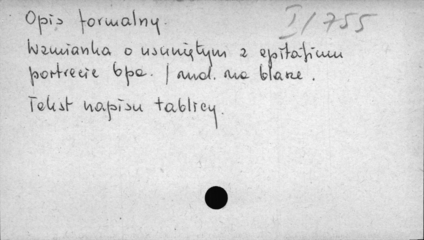 Opis formalny. I/755
Wzmianka o usuniętym z epitafium
portrecie bpa. / mal. na blasze.
Tekst napisu tablicy.